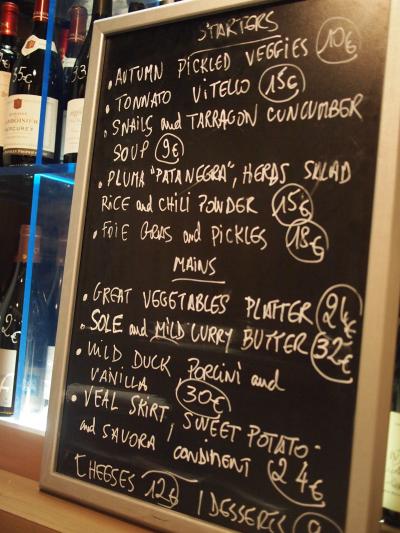 STARTERS
• AUTUMN PICKLED VEGGIES 10€
• TONNATO VITELLO 15€
• SNAILS and TARRAGON CUNCUMBER
SOUP 9€
• PLUMA "PATANEGRA", HERBS SALAD
RICE and CHILI POWDER 15€
• FOIE GRAS and PICKLES 18€
MAINS
• GREAT VEGETABLES PLATTER 24€
• SOLE and MILD CURRY BUTTER 32€
• WILD DUCK PORCINI and
VANILLA 30€
• VEAL SKIRT, SWEET POTATO
and SAVORA CONDIMENT 24€
CHEESES 12€ / DESSERTS 9